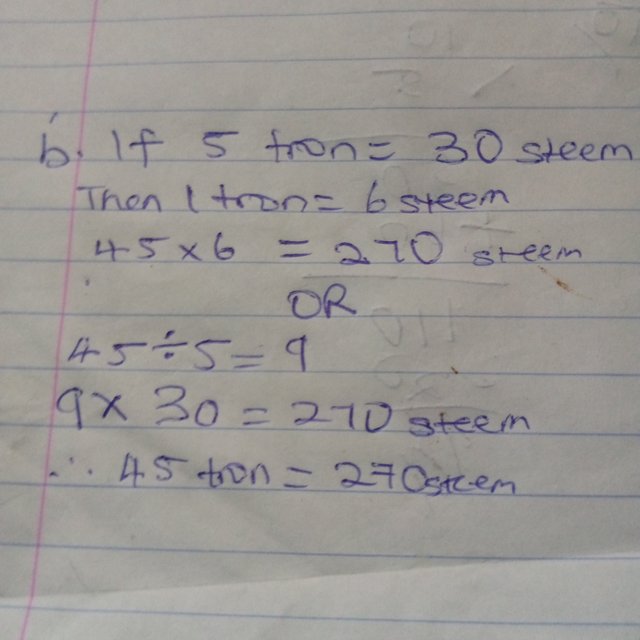 b. If 5 tron = 30 steem
Then 1 tron = 6 steem
45 × 6 = 270 steem
OR
45 ÷ 5 = 9
9 × 30 = 270 steem
∴ 45 tron = 270 steem